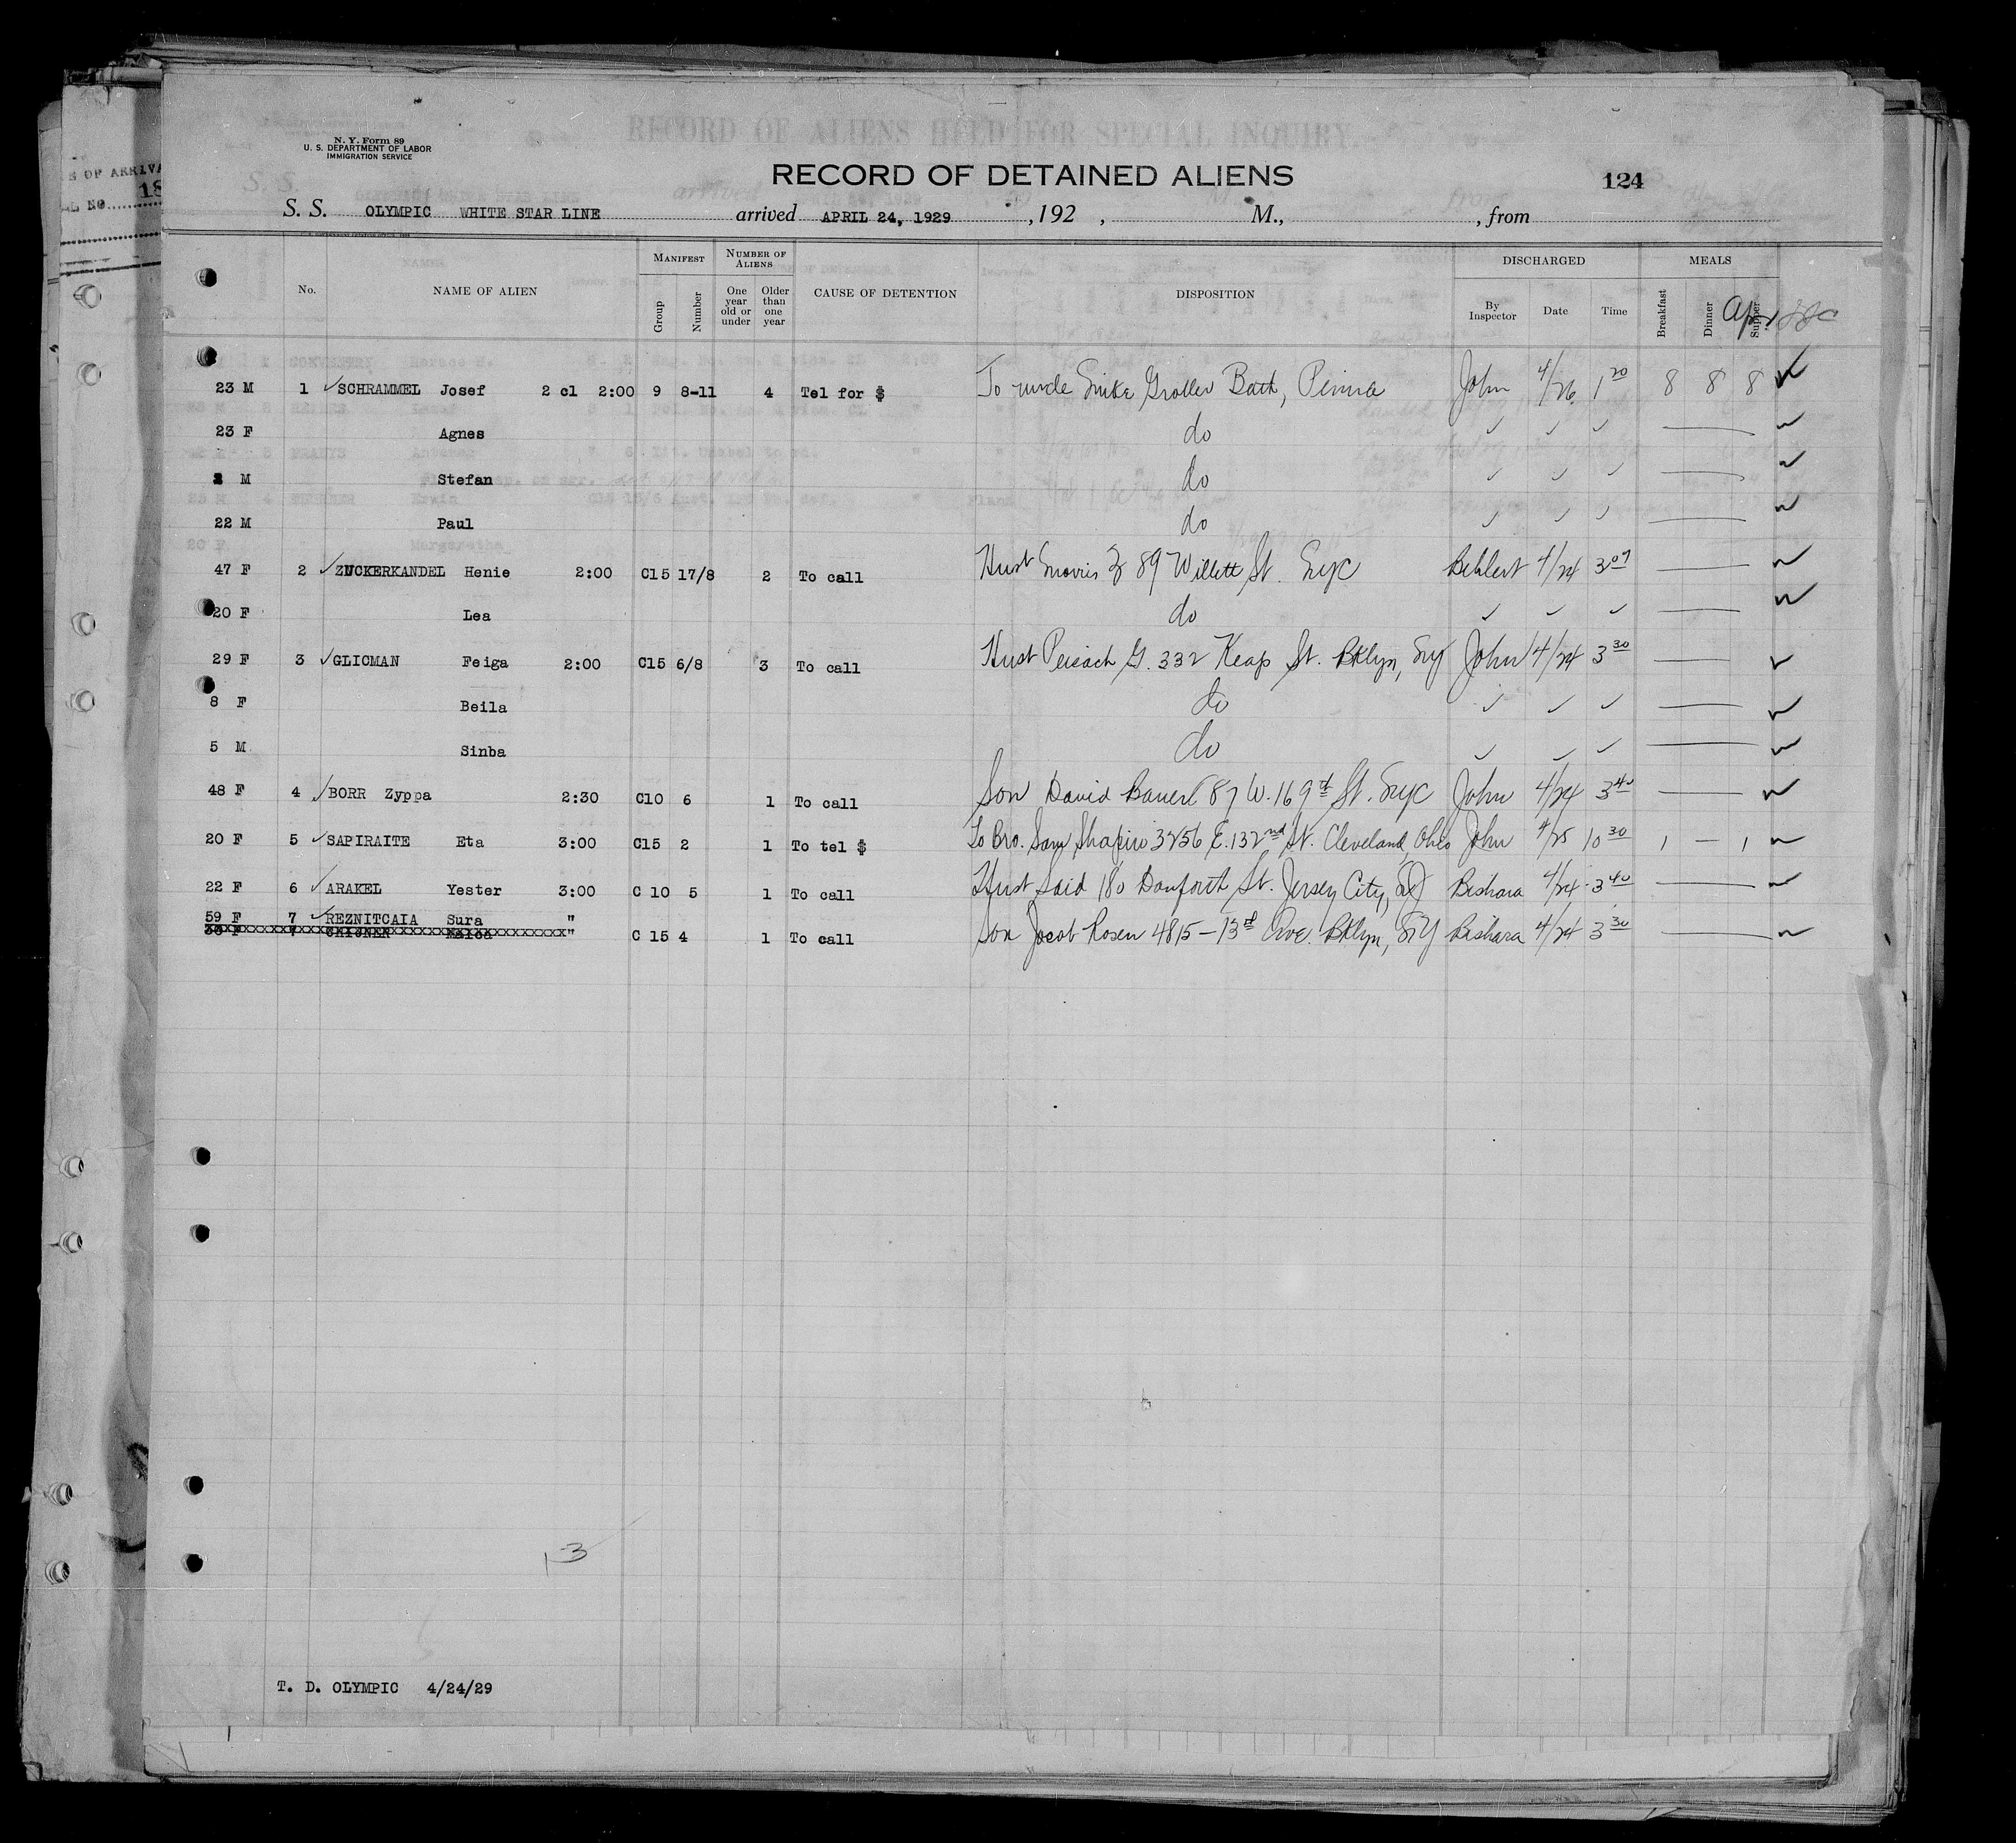 S OF ARRIVA
18
AL NO.
N. Y. Form 89
U. S. DEPARTMENT OF LABOR
IMMIGRATION SERVICE
RECORD OF ALIENS HELD FOR SPECIAL INQUIRY.
RECORD OF DETAINED ALIENS
124
S. S. OLYMPIC WHITE STAR LINE arrived APRIL 24, 1929 , 192 , M., , from
No. NAME OF ALIEN MANIFEST Group Number NUMBER OF ALIENS One year old or under Older than one year CAUSE OF DETENTION DISPOSITION DISCHARGED By Inspector Date Time MEALS Breakfast Dinner Supper
23 M 1 ✓SCHRAMMEL Josef 2 cl 2:00 9 8-11 4 Tel for $ To uncle Mike Groller Bath, Penna John 4/26 1 20 8 8 8 ✓
23 F Agnes do ✓ ✓ ✓
M Stefan do ✓ ✓ ✓
22 M Paul do ✓ ✓ ✓
47 F 2 ✓ZUCKERKANDEL Henie 2:00 C15 17/8 2 To call Hust Morris Z 89 Willett St. NYC Behlert 4/24 3 07
20 F Lea do ✓ ✓ ✓
29 F 3 ✓GLICMAN Feiga 2:00 C15 6/8 3 To call Hust Peisach G. 332 Keap St. Bklyn, NY John 4/24 3 30 ✓
8 F Beila do ✓ ✓ ✓
5 M Sinba do ✓ ✓ ✓
48 F 4 ✓BORR Zyppa 2:30 C10 6 1 To call Son David Bauer 87 W. 169th St. NYC John 4/24 3 40
20 F 5 ✓SAPIRAITE Eta 3:00 C15 2 1 To tel $ To Bro. Sam Shapiro 3256 E. 132nd St. Cleveland, Ohio John 4/25 10 30 1 — 1
22 F 6 ✓ARAKEL Yester 3:00 C 10 5 1 To call Hust Said 180 Danforth St. Jersey City, NJ Bishara 4/24 3 40
59 F 7 ✓REZNITCAIA Sura "
C 15 4 1 To call Son Jacob Rosen 4815 – 13th Ave. Bklyn, NY Bishara 4/24 3 30
13
T. D. OLYMPIC 4/24/29